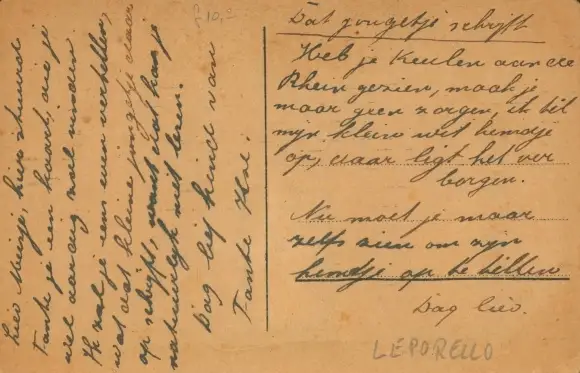 f 10,2
Lieve Meisje, hier stuurd
Tante je een kaart, die je
wel aarig zal vinden
Ik zal je eens even vertellen,
wat dat kleine jongetje daar
op schrijft, want dat kan je
natuurlijk niet leren.
Dag lief kind van
Tante
Dat jongetje schrijft
Heb je Keulen aan de
Rhein gezien, maak je
maar geen zorgen, ik til
mijn klein wit hemdje
op, daar ligt het ver
borgen.
Nu moet je maar
zelfs zien om zijn
hemdje op te tillen
Dag
LEPORELLO